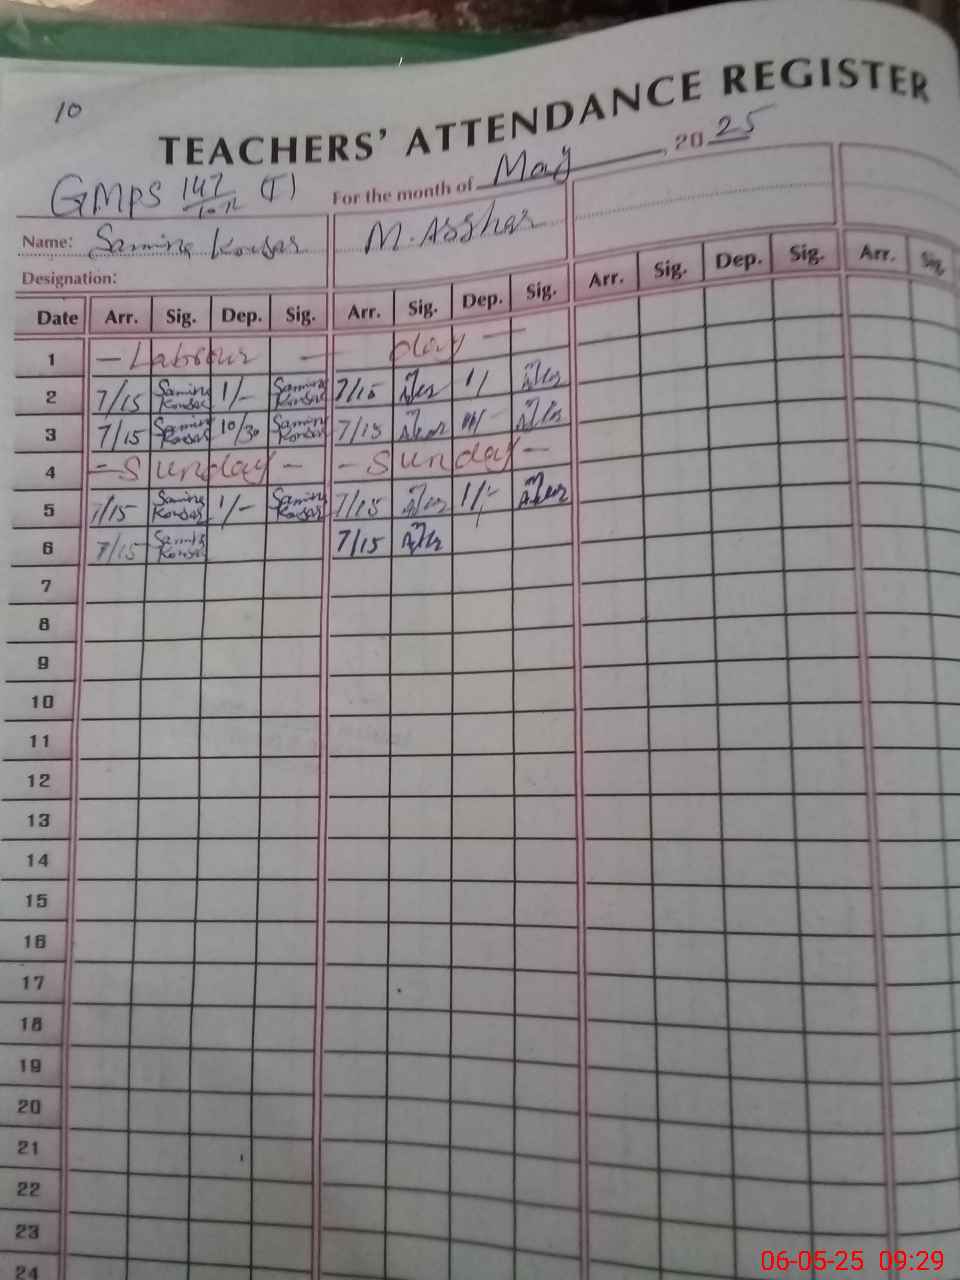 10
TEACHERS' ATTENDANCE REGISTER
GMPS 147/10R (I) For the month of May, 2025
Name: Samina Kousar M. Asghar
Designation:
Date Arr. Sig. Dep. Sig. Arr. Sig. Dep. Sig. Arr. Sig. Dep. Sig. Arr. Sig.
1 — Labour — Day —
2 7/15 Samina Kousar 1/- Samina Kousar 7/15 1/
3 7/15 Samina Kousar 10/30 Samina Kousar 7/15
4 - Sunday - - Sunday -
5 7/15 Samina Kousar 1/- Samina Kousar 7/15 1/-
6 7/15 Samina Kousar 7/15
7
8
9
10
11
12
13
14
15
16
17
18
19
20
21
22
23
24
06-05-25 09:29